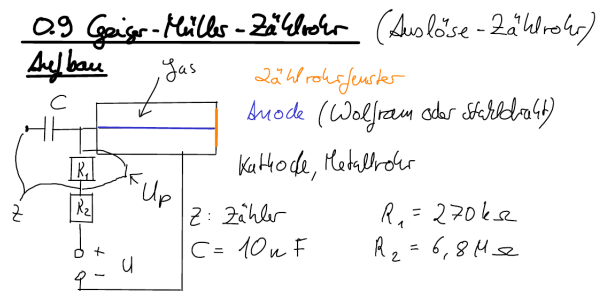 0.9 Geiger-Müller-Zählrohr (Auslöse-Zählrohr)
Aufbau
Gas
Zählrohrfenster
C
Anode (Wolfram oder Stahldraht)
R₁
Kathode, Metallrohr
Up
Z
R₂
Z: Zähler R₁ = 270kΩ
+
C = 10nF R₂ = 6,8MΩ
- U